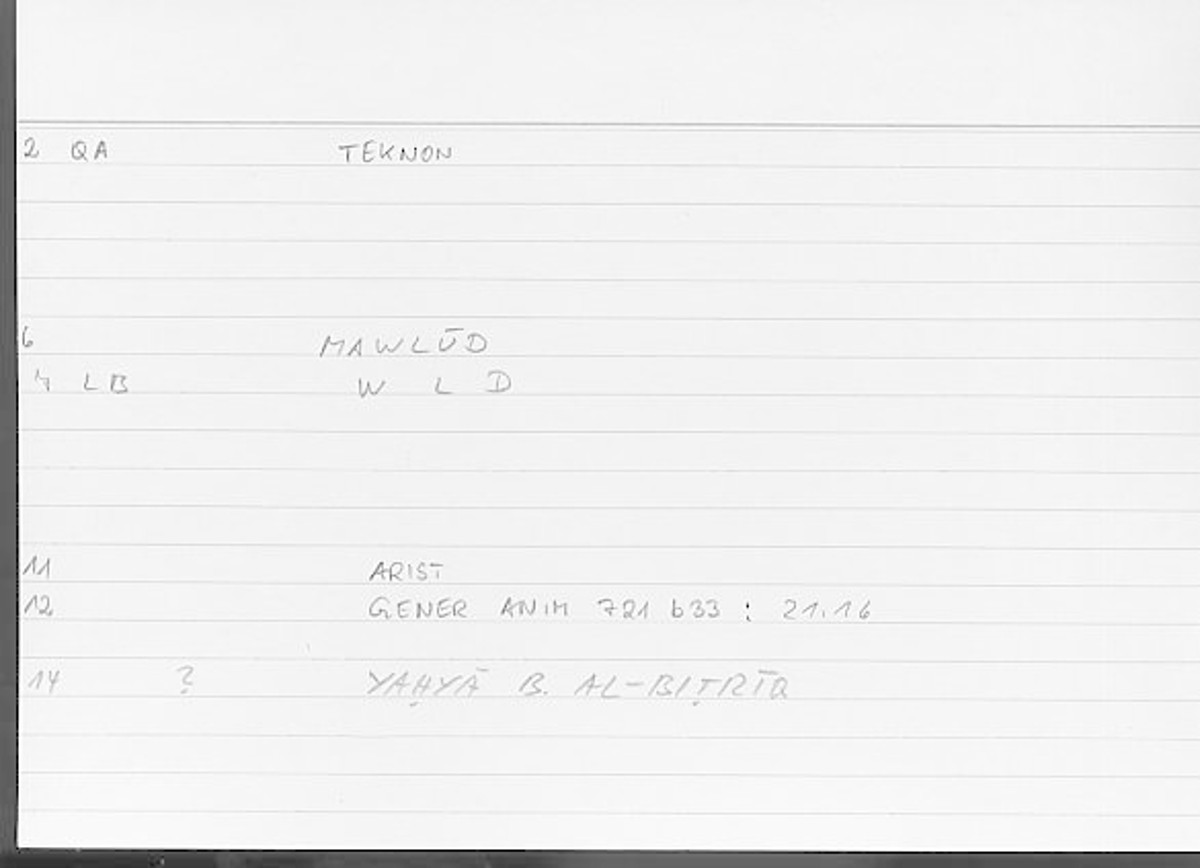 2 QA TEKNON
6 MAWLŪD
7 LB W L D
11 ARIST
12 GENER ANIM 721 b33 : 21.16
14 ? YAḤYĀ B. AL-BIṬRĪQ